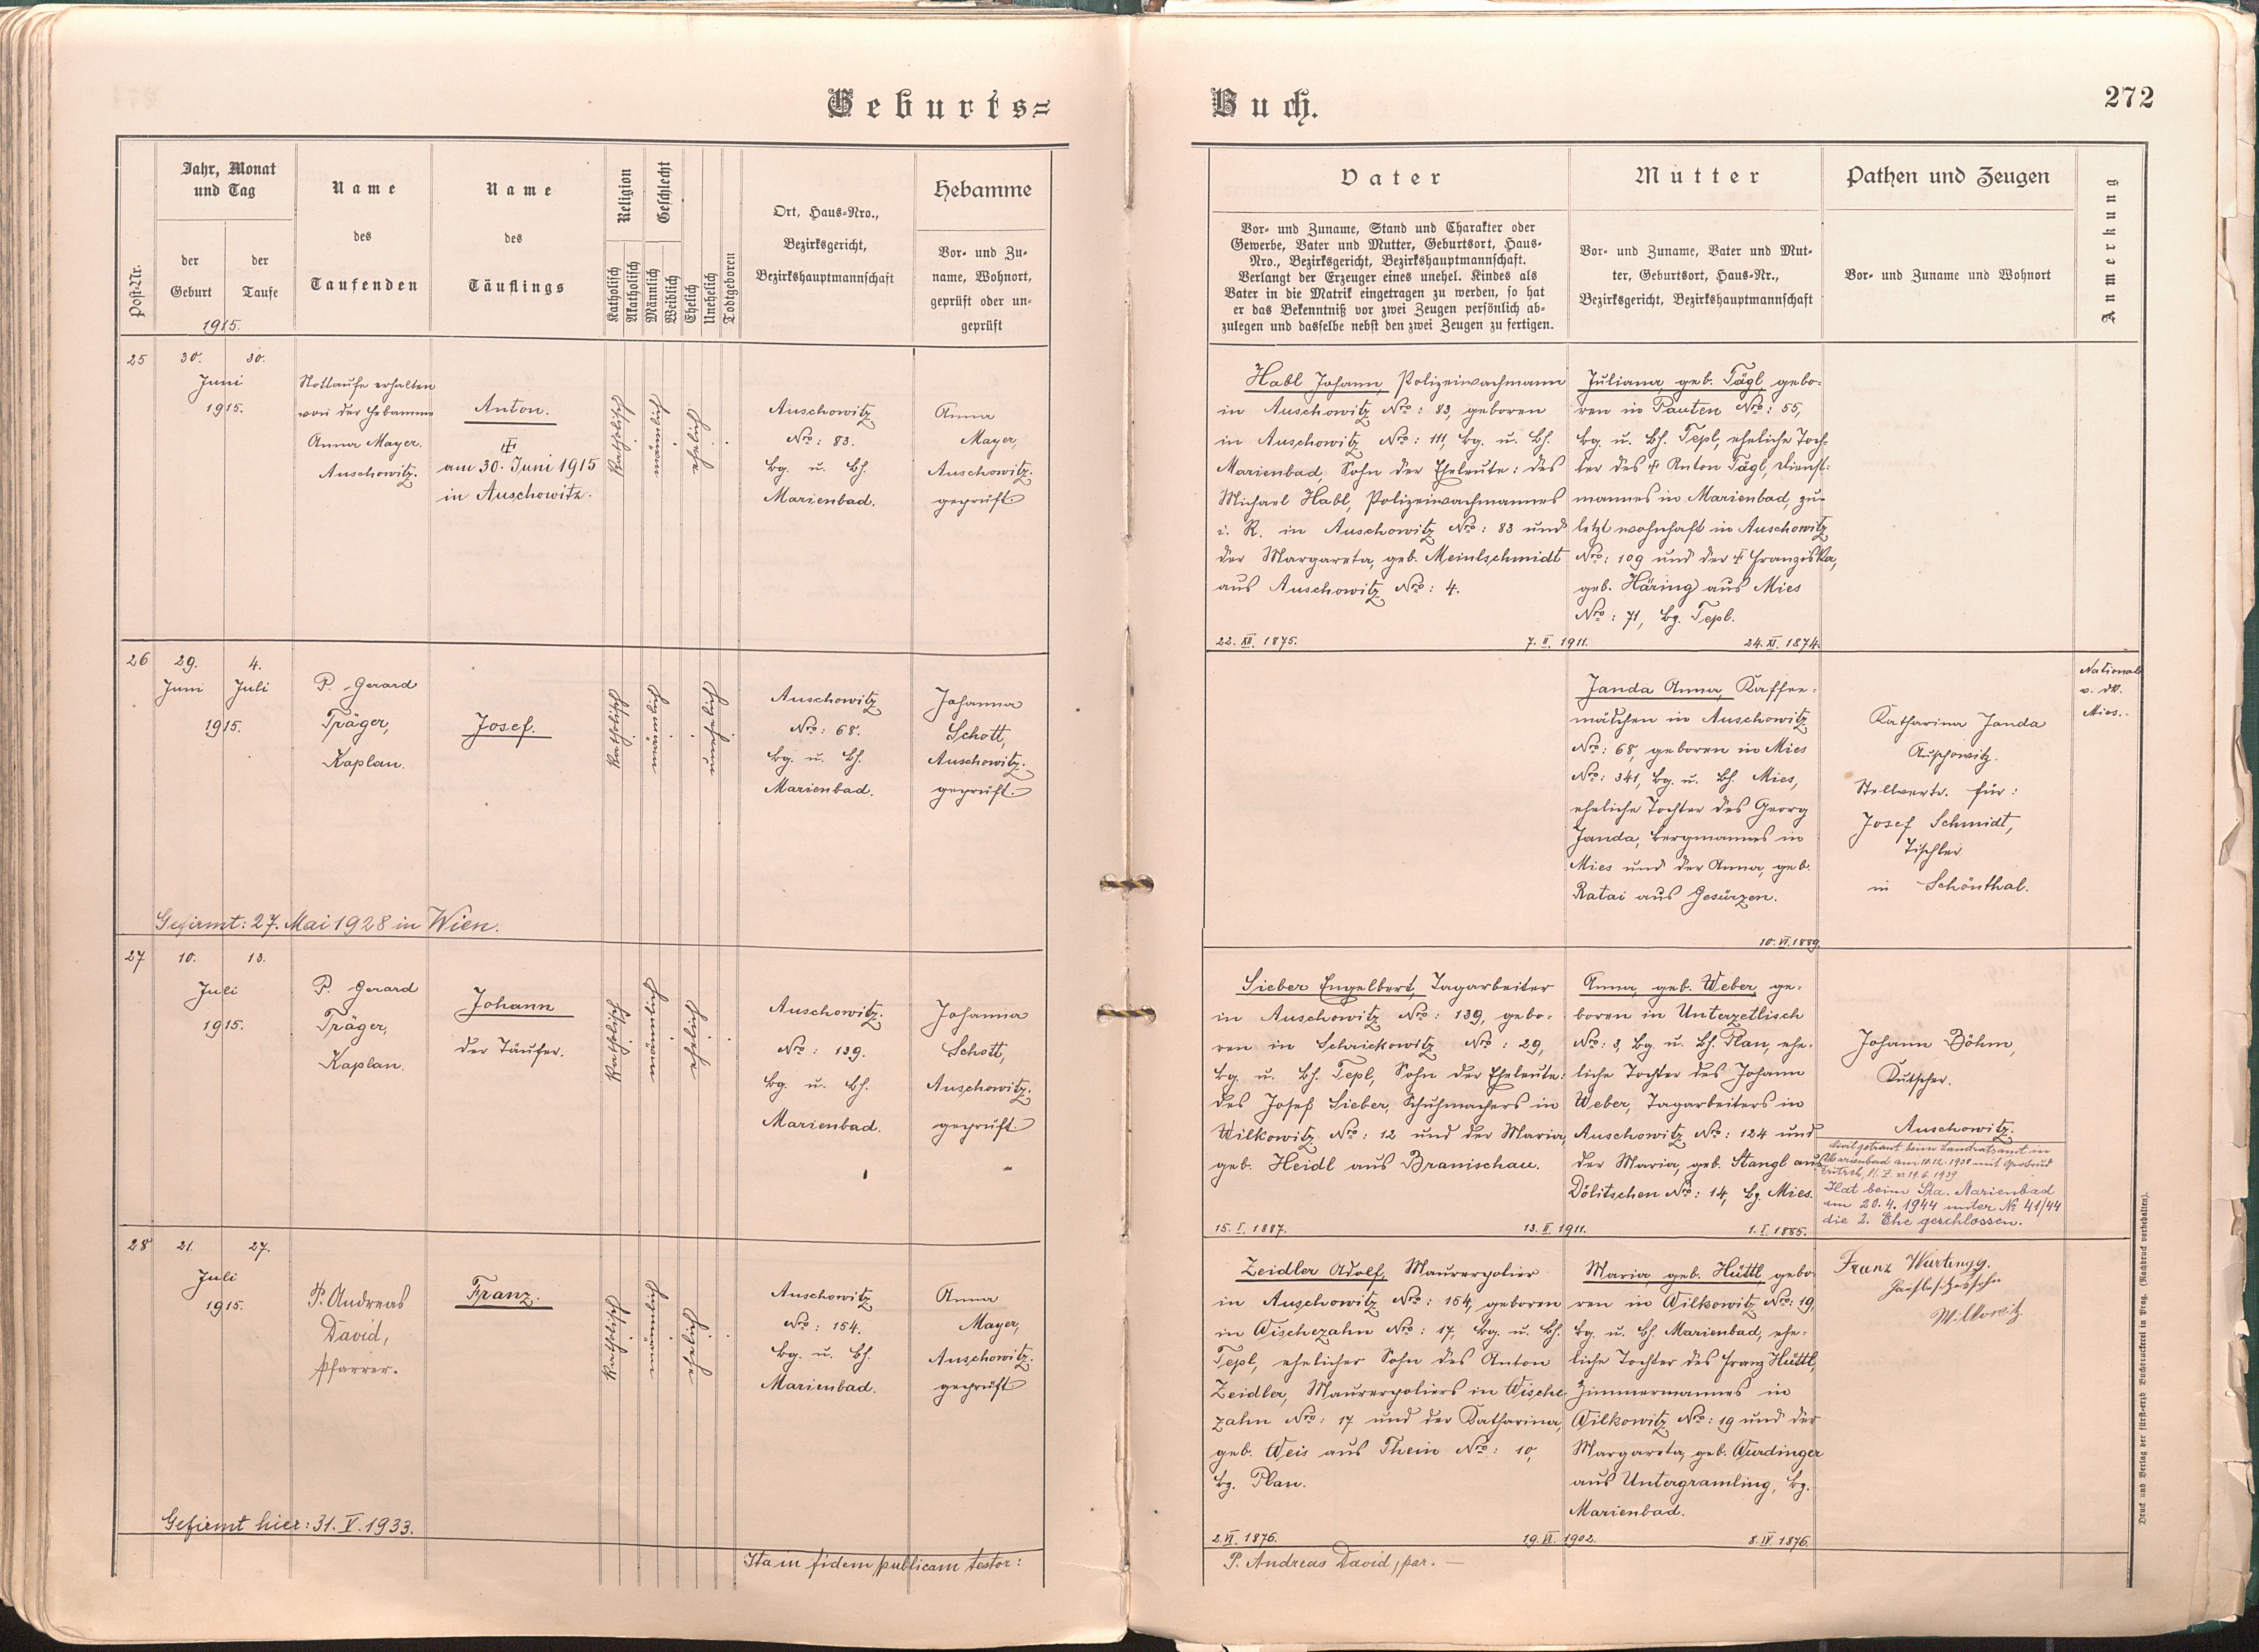 Geburts=
Buch.
272
Post-Nr.
Jahr, Monat
und Tag
der
Geburt
der
Taufe
1915.
Name
des
Taufenden
Name
des
Täuflings
Religion
Katholisch
Akatholisch
Geschlecht
Männlich
Weiblich
Ehelich
Unehelich
Todtgeboren
Ort, Haus-Nro.,
Bezirksgericht,
Bezirkshauptmannschaft
Hebamme
Vor- und Zu-
name, Wohnort,
geprüft oder un-
geprüft
Vater
Vor- und Zuname, Stand und Charakter oder
Gewerbe, Vater und Mutter, Geburtsort, Haus-
Nro., Bezirksgericht, Bezirkshauptmannschaft.
Verlangt der Erzeuger eines unehel. Kindes als
Vater in die Matrik eingetragen zu werden, so hat
er das Bekenntniß vor zwei Zeugen persönlich ab-
zulegen und dasselbe nebst den zwei Zeugen zu fertigen.
Mutter
Vor- und Zuname, Vater und Mut-
ter, Geburtsort, Haus-Nr.,
Bezirksgericht, Bezirkshauptmannschaft
Pathen und Zeugen
Vor- und Zuname und Wohnort
Anmerkung
25
30.
30.
Juni
1915.
Nottaufe erhalten
von der Hebamme
Anna Mayer.
Auschowitz.
Anton.
am 30. Juni 1915
in Auschowitz.
Katholisch
Auschowitz
Nro: 83.
Bg. u. Bh.
Marienbad.
Anna
Mayer,
Auschowitz.
geprüft
Habl Johann, Polizeiwachmann
in Auschowitz Nro: 83, geboren
in Auschowitz Nro: 111, Bg. u. Bh.
Marienbad, Sohn der Eheleute: des
Michael Habl, Polizeiwachmannes
i. R. in Auschowitz Nro: 83 und
der Margareta, geb. Meinlschmidt
aus Auschowitz Nro: 4.
22. XII. 1875.
7. II. 1911.
Juliana, geb. Tägl, gebo-
ren in Pauten Nro: 55,
Bg. u. Bh. Tepl, eheliche Toch-
ter des ‡ Anton Tägl, Dienst-
mannes in Marienbad, zu-
letzt wohnhaft in Auschowitz
Nro: 109 und der ‡ Franziska,
geb. Häring aus Mies
Nro: 71, Bg. Tepl.
24. XI. 1874.
26
29.
4.
Juni
Juli
1915.
P. Gerard
Träger,
Kaplan.
Josef.
Katholisch
Auschowitz
Nro: 68.
Bg. u. Bh.
Marienbad.
Johanna
Schott,
Auschowitz.
geprüft.
Janda Anna, Kaffee-
mädchen in Auschowitz
Nro: 68, geboren in Mies
Nro: 341, Bg. u. Bh. Mies,
eheliche Tochter des Georg
Janda, Bergmannes in
Mies und der Anna, geb.
Ratai aus Gesürzen.
10. VI. 1889.
Katharina Janda
Auschowitz.
Stellvertr. für:
Josef Schmidt,
Tischler
in Schönthal.
National
Mies.
Gefirmt: 27. Mai 1928 in Wien.
27
10.
13.
Juli
1915.
P. Gerard
Träger,
Kaplan.
Johann
der Täufer.
Katholisch
Auschowitz.
Nro: 139.
Bg. u. Bh.
Marienbad.
Johanna
Schott,
Auschowitz.
geprüft.
Sieber Engelbert, Tagarbeiter
in Auschowitz Nro: 139, gebo-
ren in Schrickowitz Nro: 29,
Bg. u. Bh. Tepl, Sohn der Eheleute:
des Josef Sieber, Schuhmachers in
Wilkowitz Nro: 12 und der Maria,
geb. Heidl aus Branischau.
15. I. 1887.
13. II. 1911.
Anna, geb. Weber, ge-
boren in Unterzetlisch
Nro: 3, Bg. u. Bh. Plan, ehe-
liche Tochter des Johann
Weber, Tagarbeiters in
Auschowitz Nro: 124 und
der Maria, geb. Stangl aus
Dölitschen Nro: 14, Bg. Mies.
1. I. 1885.
Johann Böhm,
Kutscher.
Auschowitz.
Civilgetraut beim Landratsamt in
Marienbad am 10.12.1938 mit
Hat beim Sta. Marienbad
am 20. 4. 1944 unter № 41/44
die 2. Ehe geschlossen.
28
21.
27.
Juli
1915.
P. Andreas
David,
Pfarrer.
Franz.
Katholisch
Auschowitz
Nro: 154.
Bg. u. Bh.
Marienbad.
Anna
Mayer,
Auschowitz.
geprüft
Zeidler Adolf, Maurerpolier
in Auschowitz Nro: 154, geboren
in Wischezahn Nro: 17, Bg. u. Bh.
Tepl, ehelicher Sohn des Anton
Zeidler, Maurerpoliers in Wische-
zahn Nro: 17 und der Katharina,
geb. Weis aus Thein Nro: 10,
Bg. Plan.
2. VI. 1876.
19. VI. 1902.
Maria, geb. Hüttl, gebo-
ren in Wilkowitz Nro: 19,
Bg. u. Bh. Marienbad, ehe-
liche Tochter des Franz Hüttl,
Zimmermannes in
Wilkowitz Nro: 19 und der
Margareta, geb. Wurdinger
aus Untergramling, Bg.
Marienbad.
8. IV. 1876.
Franz
Wilkowitz
Gefirmt hier: 31. V. 1933.
Ita in fidem publicam testor:
P. Andreas David, par. —
Druck und Verlag der fürst-erzb. Buchdruckerei in Prag. (Nachdruck vorbehalten).